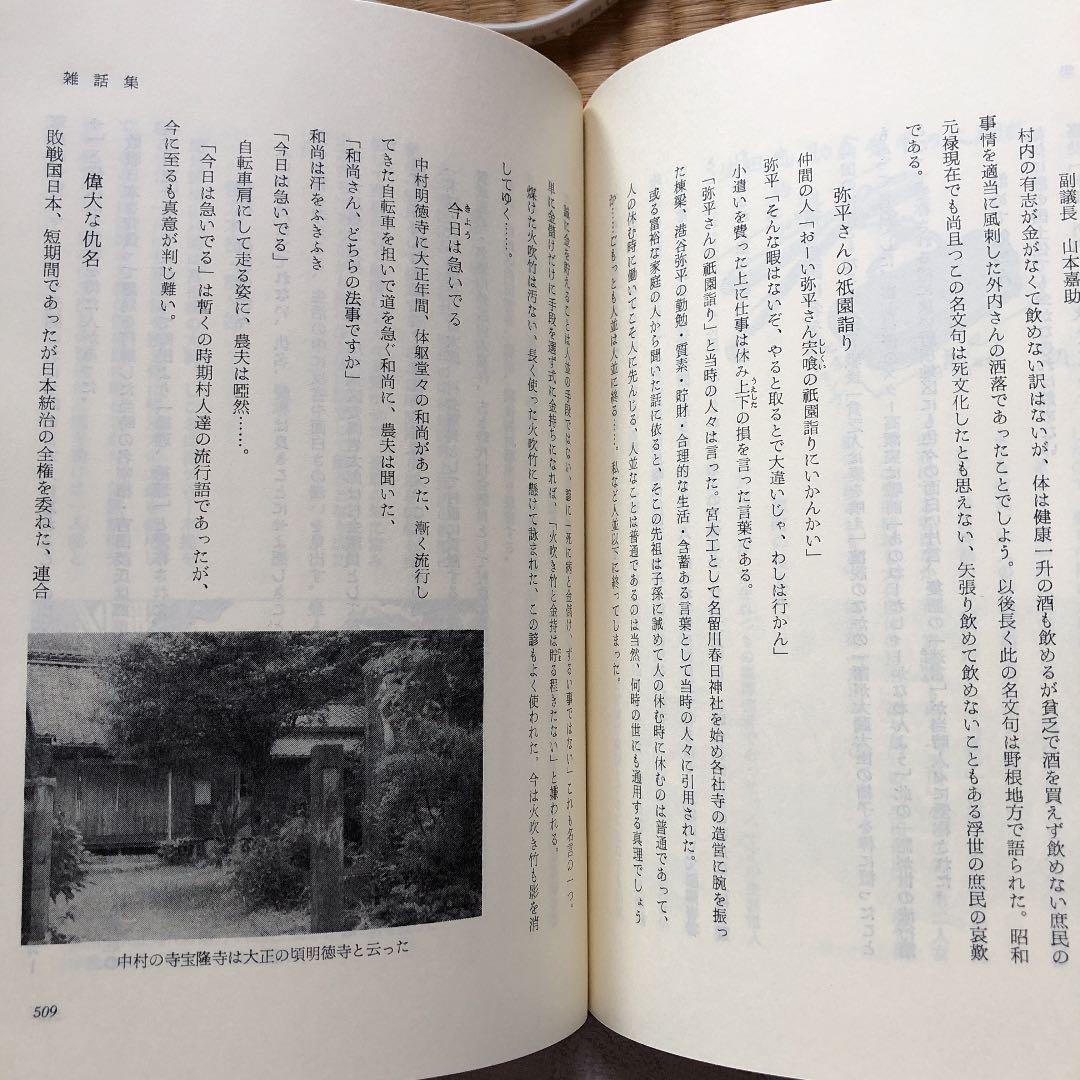 副議長 山本嘉助、
村内の有志が金がなくて飲めない訳はないが、体は健康一升の酒も飲めるが貧乏で酒を買えず飲めない庶民の
事情を適当に風刺した外内さんの洒落であったことでしよう。以後長く此の名文句は野根地方で語られた。昭和
元禄現在でも尚且っこの名文句は死文化したとも思えない、矢張り飲めて飲めないこともある浮世の庶民の哀歎
である。
弥平さんの祇園詣り
仲間の人「おーい弥平さん宍喰の祇園詣りにいかんかい」
ししくい
弥平「そんな暇はないぞ、やると取るとで大違いじゃ、わしは行かん」
小遣いを費った上に仕事は休み上下の損を言った言葉である。
うえした
「弥平さんの祇園詣り」と当時の人々は言った。宮大工として名留川春日神社を始め各社寺の造営に腕を振っ
た棟梁、港谷弥平の勤勉・質素・貯財・合理的な生活・含蓄ある言葉として当時の人々に引用された。
或る富裕な家庭の人から聞いた話に依ると、そこの先祖は子孫に誡めて人の休む時に休むのは普通であって、
人の休む時に働いてこそ人に先んじる、人並なことは普通であるのは当然、何時の世にも通用する真理でしょう
や……でもっとも人並は人並に終る……。私など人並以下に終ってしまった。
誠に金を貯えることは人並の手段ではない、諺に「死に病と金儲け、ずるい事ではない」これも名言の一つ。
単に金儲けだけに手段を選ず式に金持ちになれば、「火吹き竹と金持は貯る程きたない」と嫌われる。
煤けた火吹竹は汚ない、長く使った火吹竹に懸けて詠まれた、この諺もよく使われた。今は火吹き竹も影を消
してゆく……。
雑話集
今日は急いでる
きよう
中村明徳寺に大正年間、体躯堂々の和尚があった、漸く流行し
てきた自転車を担いで道を急ぐ和尚に、農夫は聞いた、
「和尚さん、どちらの法事ですか」
和尚は汗をふきふき
「今日は急いでる」
自転車肩にして走る姿に、農夫は啞然……。
「今日は急いでる」は暫くの時期村人達の流行語であったが、
今に至るも真意が判じ難い。
偉大な仇名
敗戦国日本、短期間であったが日本統治の全権を委ねた、連合
中村の寺宝隆寺は大正の頃明徳寺と云った
509